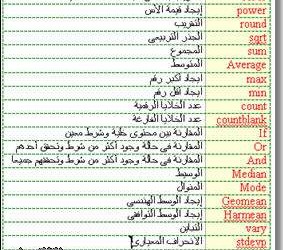 إيجاد قيمة الأس power
التقريب round
الجذر التربيعي sqrt
المجموع sum
المتوسط Average
ايجاد أكبر رقم max
ايجاد أقل رقم min
عدد الخلايا الرقمية count
عدد الخلايا الفارغة countblank
المقارنة بين محتوى خلية وشرط معين If
المقارنة في حالة وجود أكثر من شرط وتحقق أحدهم Or
المقارنة في حالة وجود أكثر من شرط وتحققهم جميعا And
الوسيط Median
المنوال Mode
إيجاد الوسط الهندسي Geomean
إيجاد الوسط التوافقي Harmean
التباين vary
الانحراف المعياري stdevp